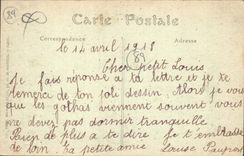 89
Carte Postale
Correspondance
Adresse
le 14 avril 1918
89
Cher petit Louis
Je fais réponse a ta lettre et je te
remerci de ton joli dessin. Alors je vois
que les gothas viennent souvent vous
ne devez pas dormir tranquille
Rien de plus a te dire je t'embrasse
de loin ta petite amie Louise